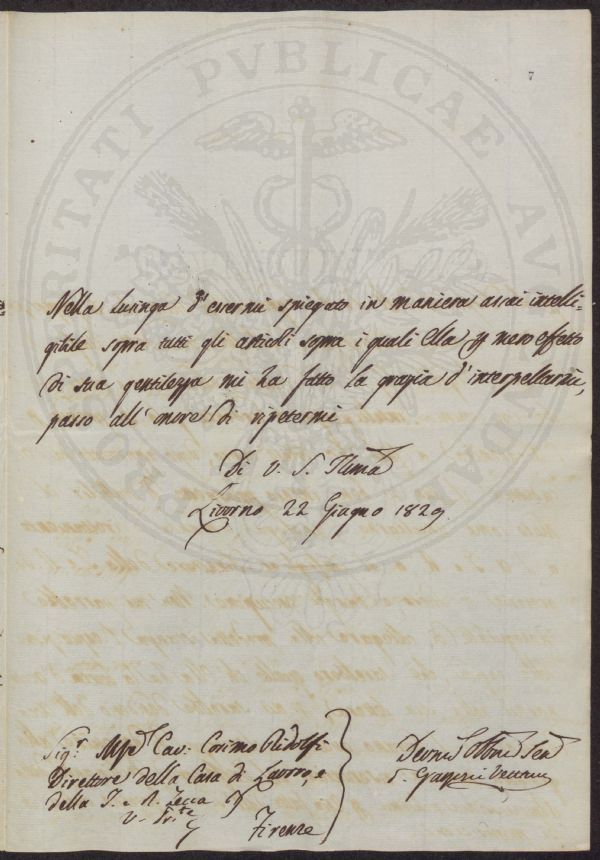 7
Nella lusinga d'essermi spiegato in maniera assai intelli=
gibile sopra tutti gli articoli sopra i quali Ella p mero effetto
di sua gentilezza mi ha fatto la grazia d'interpellarmi,
passo all'onore di ripetermi
Di V. S. Illma
Livorno 22 Giugno 1829
Sigr. Cav: Cosimo Ridolfi
Direttore della Casa di Lavoro, e
della I. e R. Zecca
Firenze
PRO VERITATI PVBLICAE